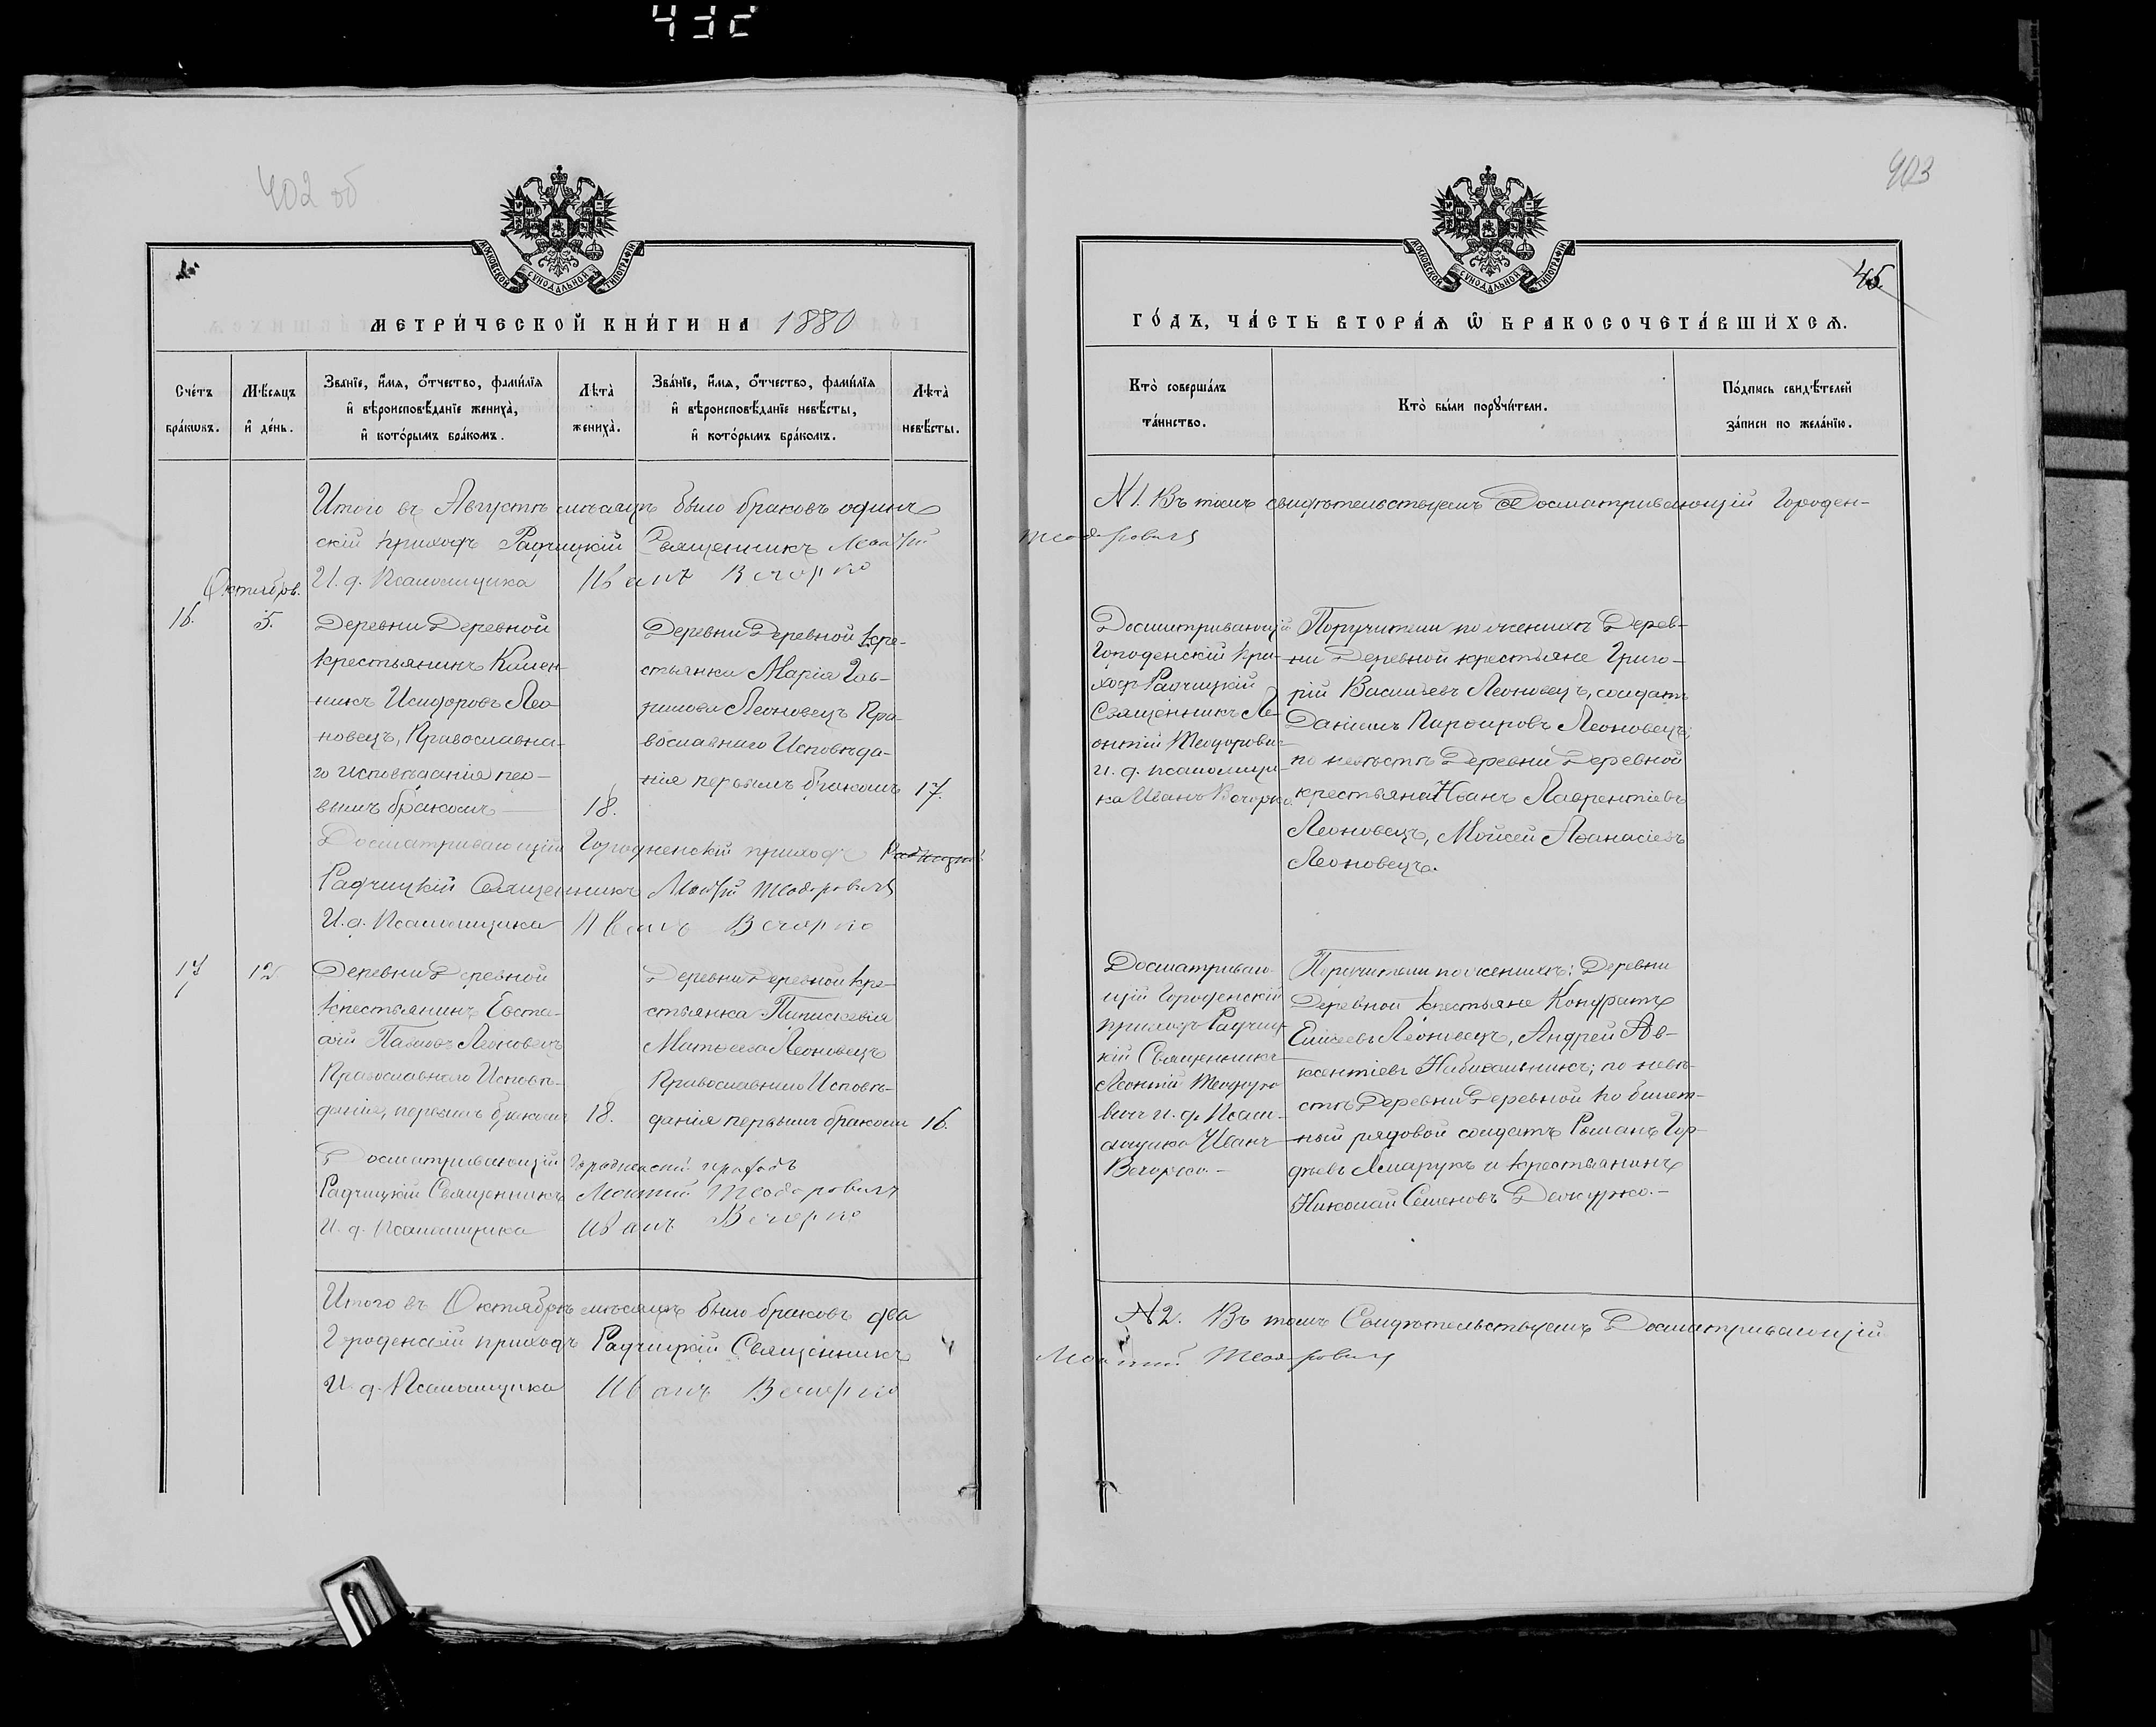 402 об
МОСКОВСКОЙ СѴНОДАЛЬНОЙ ТИПОГРАФІИ
МЕТРИ́ЧЕСКОЙ КНИ́ГИ НА 1880
Сче́тъ бра́кѡвъ.
Мѣ́сяцъ и҆ де́нь.
Зва́нїе, и҆́мя, ѻ҆́тчество, фами́лїя и҆ вѣроисповѣ́данїе жениха̀, и҆ кото́рымъ бра́комъ.
Лѣта̀ жениха̀.
Зва́нїе, и҆́мя, ѻ҆́тчество, фами́лїя и҆ вѣроисповѣ́данїе невѣ́сты, и҆ кото́рымъ бра́комъ.
Лѣта̀ невѣ́сты.
Итого въ Августѣ мѣсяцѣ было браковъ одинъ
скій приходъ Радчицкій Священникъ
И. д. Псаломщика Иванъ Вечорко
Октябрь.
16.
5.
Деревни Деревной
крестьянинъ Камен-
никъ Исидоровъ Лео-
новецъ, Православна-
го исповѣданія пер-
вымъ бракомъ
18.
Деревни Деревной кре-
стьянка Марія Гав-
рилова Леоновецъ Пра-
вославнаго Исповѣда-
нія первымъ бракомъ
17.
Досматривающій Городненскій приходъ
Радчицкій Священникъ Леонтій Теодоровичъ
И. д. Псаломщика Иванъ Вечорко
17
12
Деревни Деревной
Крестьянинъ Евста-
фій Павловъ Леоновецъ
Православнаго Исповѣ-
данія, первымъ бракомъ
18.
Деревни Деревной кре-
стьянка
Матѳеева Леоновецъ
Православнаго Исповѣ-
данія первымъ бракомъ
16.
Досматривающій Городненскій приходъ
Радчицкій Священникъ Леонтій Теодоровичъ
И. д. Псаломщика Иванъ Вечорко
Итого въ Октябрѣ мѣсяцѣ было браковъ два
Городенскій приходъ Радчицкій Священникъ
И. д. Псаломщика Иванъ Вечорко
403
45.
МОСКОВСКОЙ СѴНОДАЛЬНОЙ ТИПОГРАФІИ
ГО́ДЪ, ЧА́СТЬ ВТОРА́Я Ѽ БРАКОСОЧЕТА́ВШИХСЯ.
Кто̀ соверша́лъ та́инство.
Кто̀ бы́ли порꙋчи́тели.
По́дпись свидѣ́телей за́писи по жела́нїю.
N 1. Въ томъ свидѣтельствуемъ Досматривающій Городен-
Теодоровичъ
Досматривающій
Городенскій при-
ходъ Радчицкій
Священникъ Ле-
онтій Теодорович
и. д. псаломщи-
ка Иванъ Вечорко.
Поручители по женихѣ Дерев-
ни Деревной крестьяне Григо-
рій Васильевъ Леоновецъ, солдатъ
Даніилъ Порфировъ Леоновецъ;
по невѣстѣ Деревни Деревной
крестьяне Иванъ Лаврентіевъ
Леоновецъ, Мойсей Аѳанасіевъ
Леоновецъ.
Досматриваю-
щій Городенскій
приходъ Радчиц-
кій Священникъ
Леонтій Теодоро-
вич и. д. Псал-
омщика Иванъ
Вечорко.-
Поручители по женихѣ: Деревни
Деревной крестьяне Кондратъ
Елисеевъ Леоновецъ, Андрей Ав-
ксентіевъ; по невѣ-
стѣ Деревни Деревной билет-
ный рядовой солдатъ Романъ Гор-
дѣевъ и крестьянинъ
Николай Семеновъ
N 2. Въ томъ Свидѣтельствуемъ Досматривающій
Леонтій Теодоровичъ